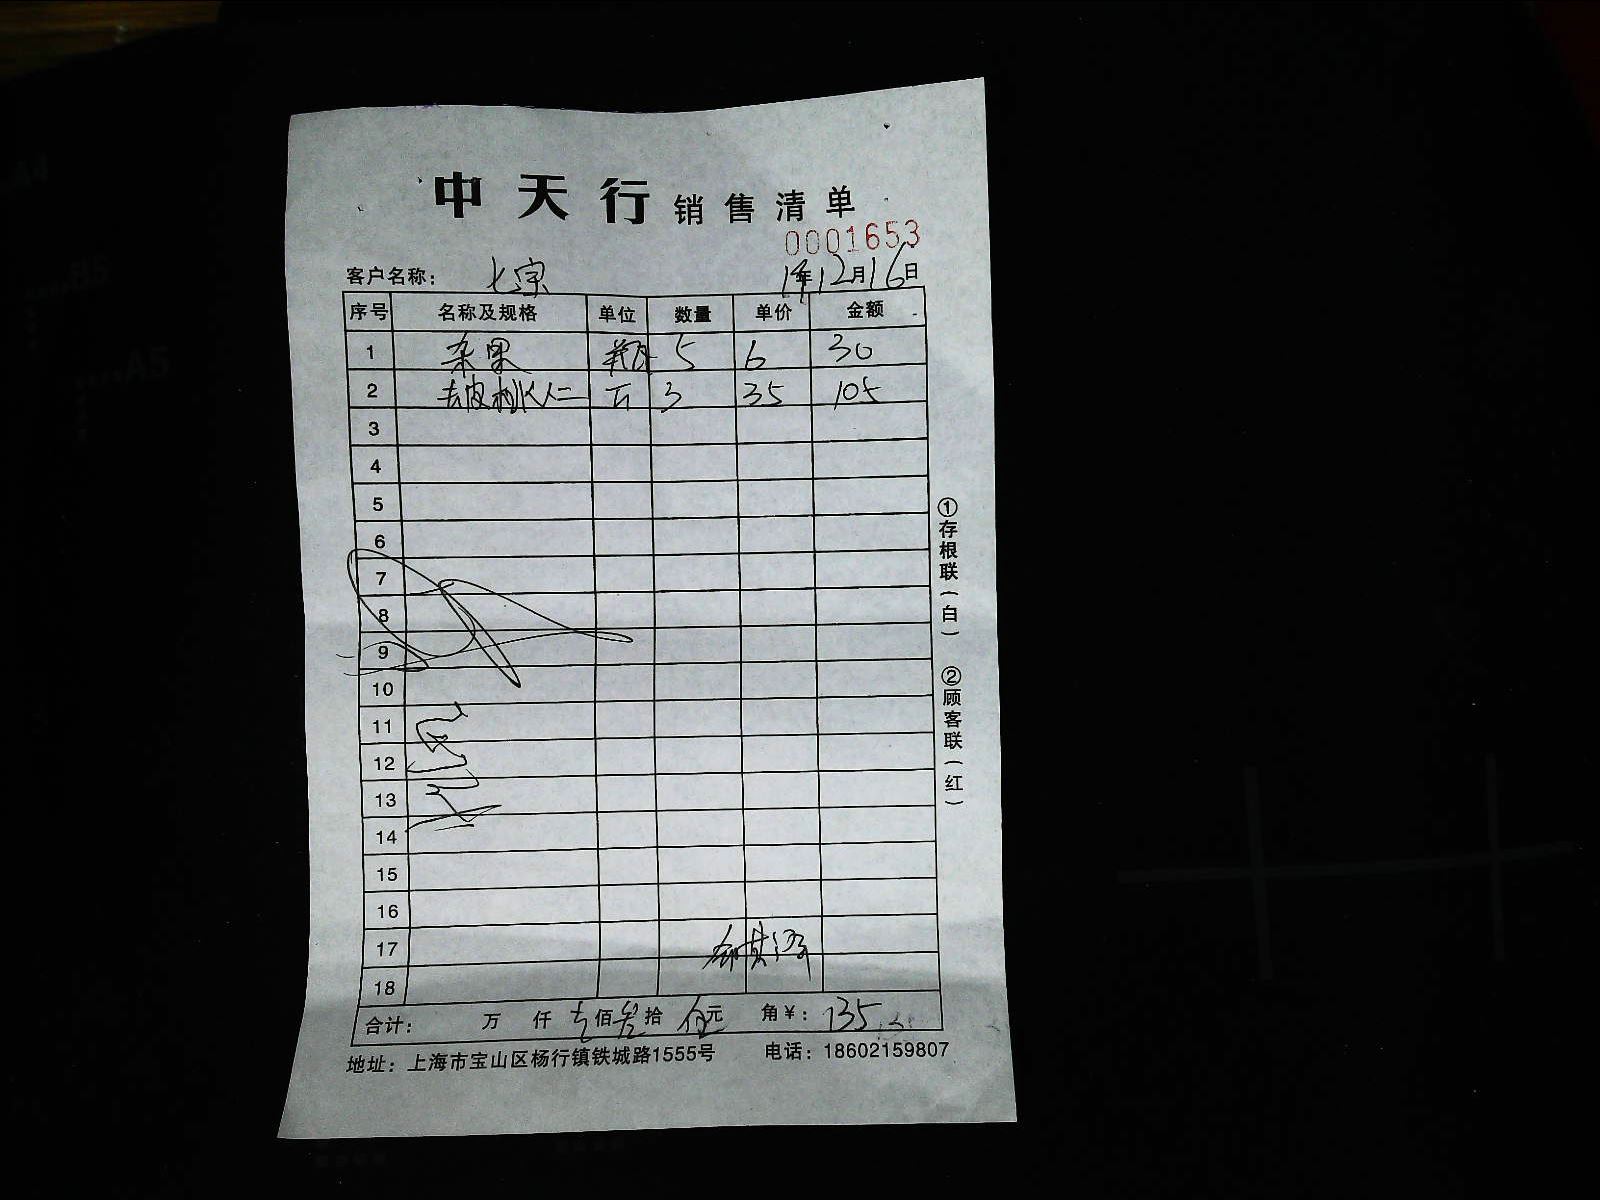 中天行销售清单
0001653
客户名称: 七宗 19年12月16日
序号 名称及规格 单位 数量 单价 金额
1 杂果 瓶 5 6 30
2 去皮桃仁 3 35 105
3
4
5
6
7
8
9
10
11
12
13
14
15
16
17
18
合计: 万 仟 壹佰叁拾伍元 角¥: 135
地址: 上海市宝山区杨行镇铁城路1555号 电话: 18602159807
①存根联(白) ②顾客联(红)